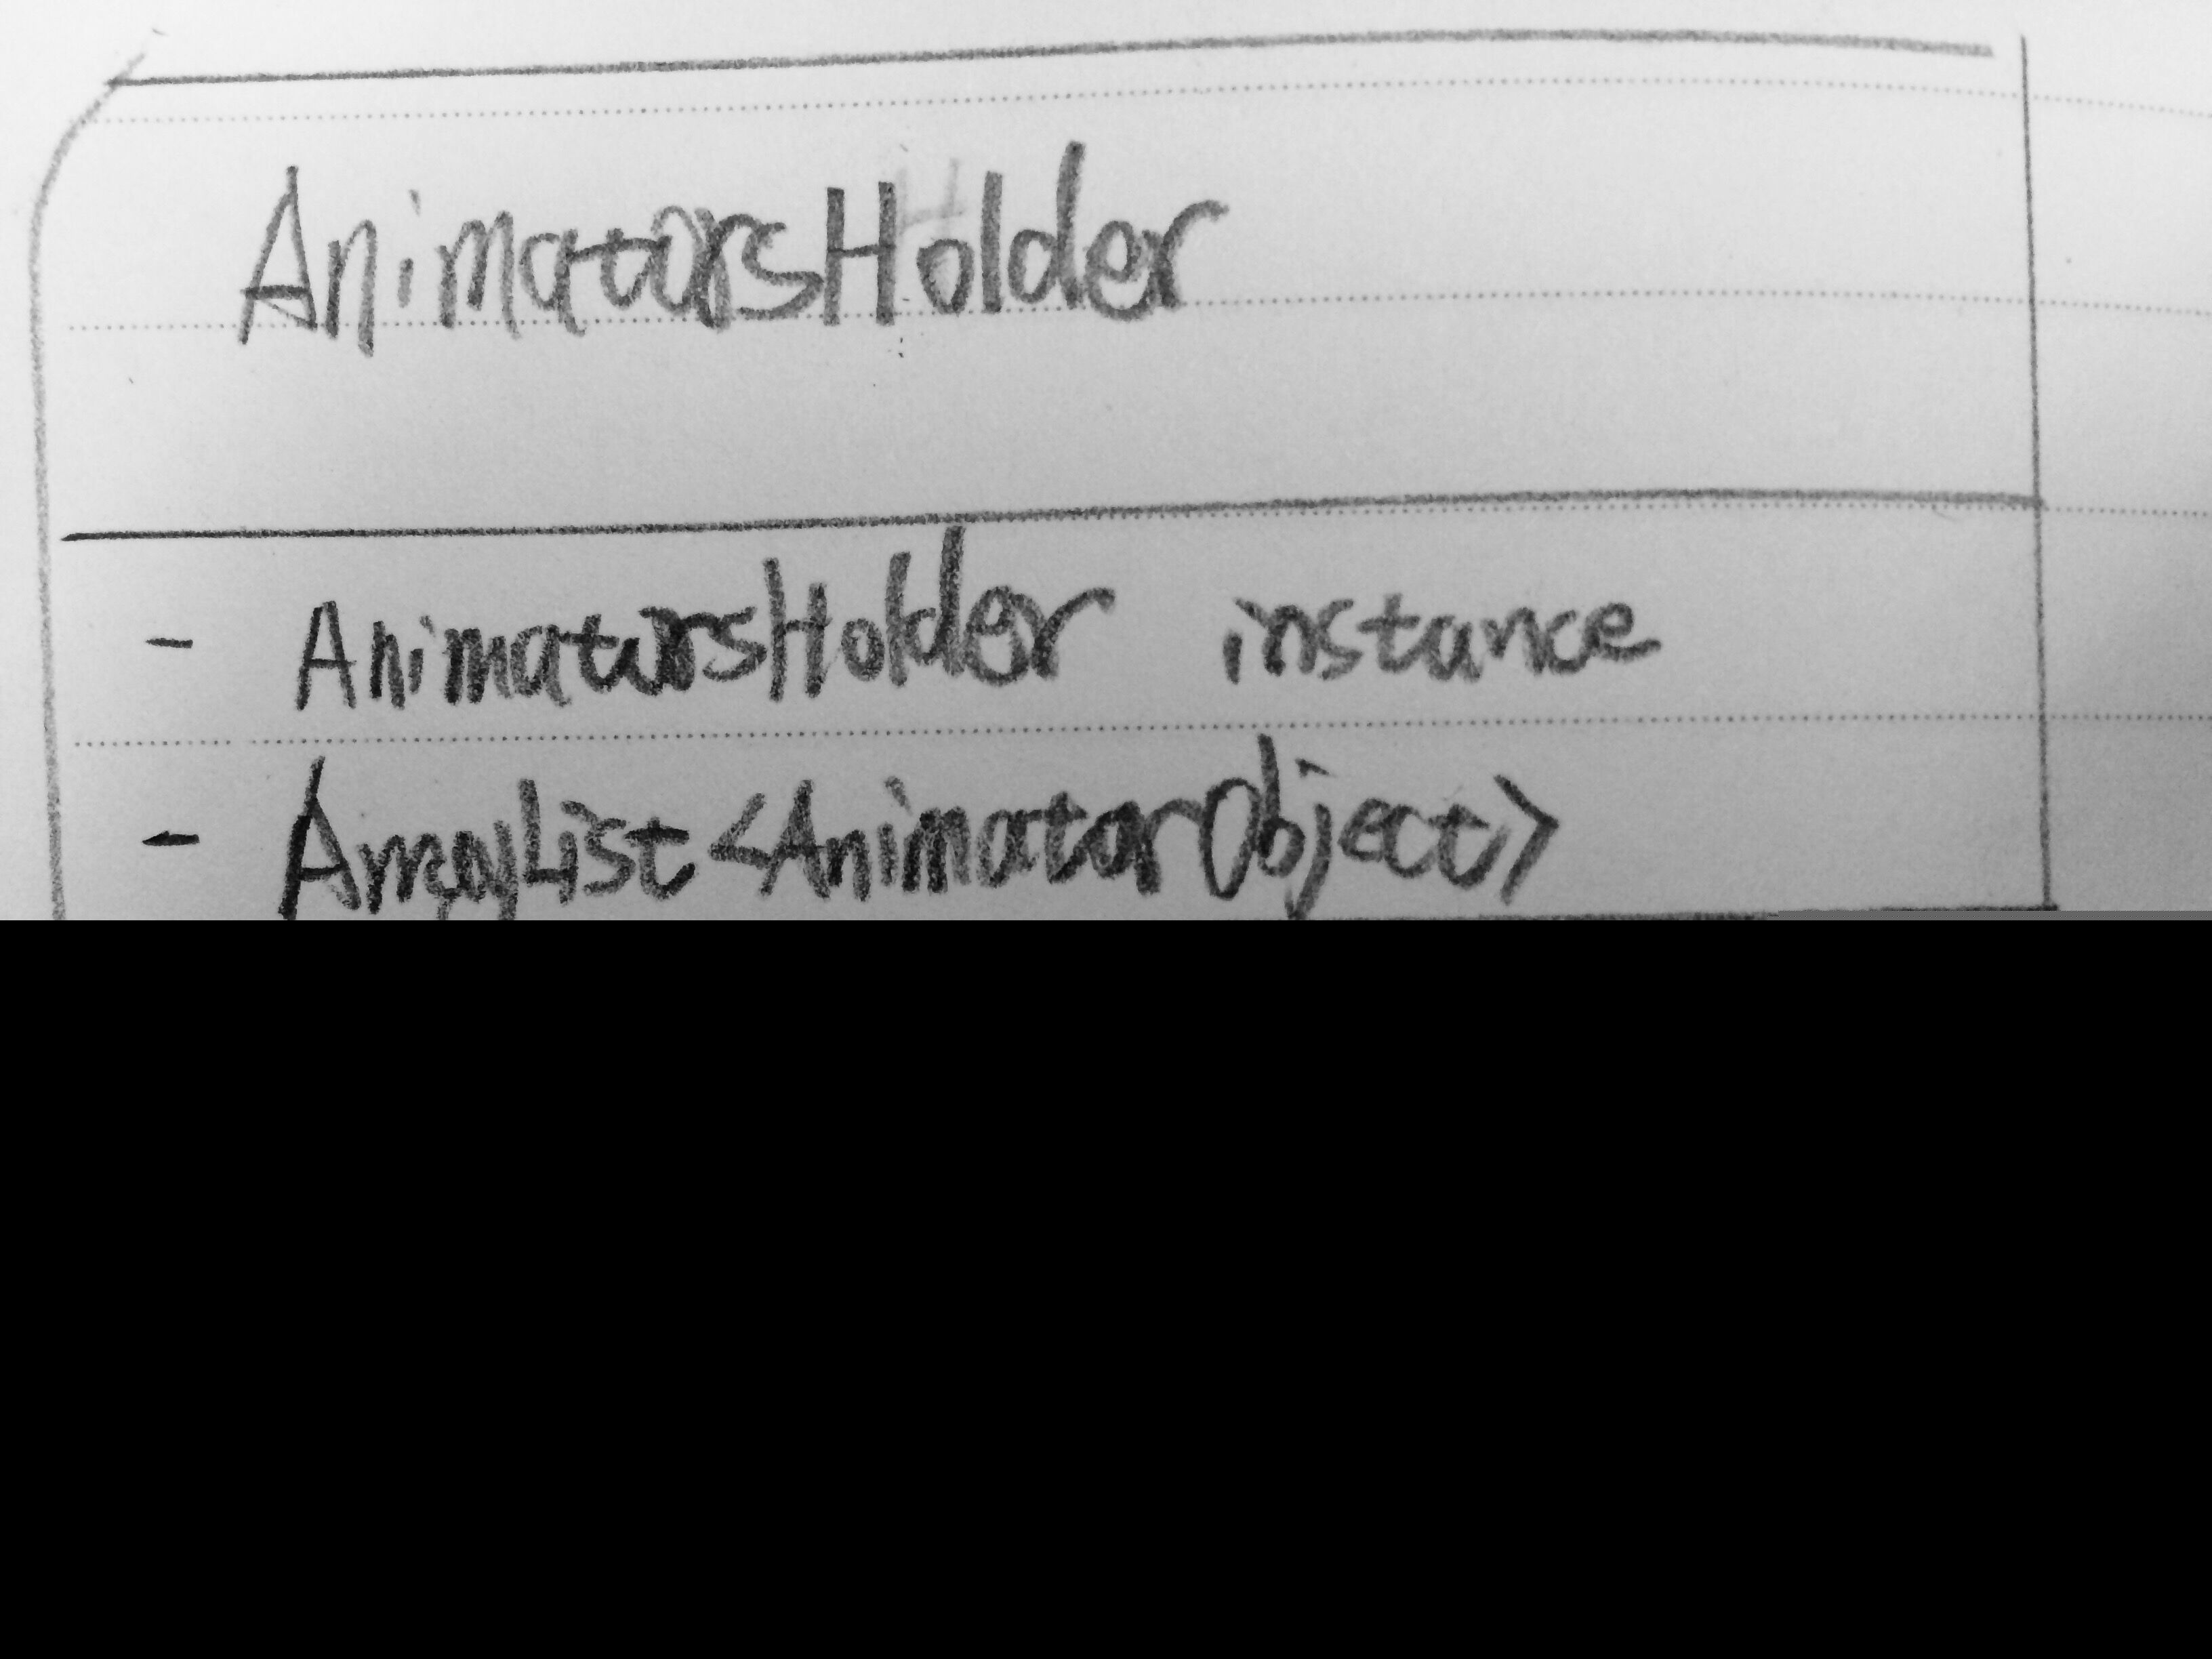 AnimatorsHolder
- AnimatorsHolder instance
- ArrayList<AnimatorObject>